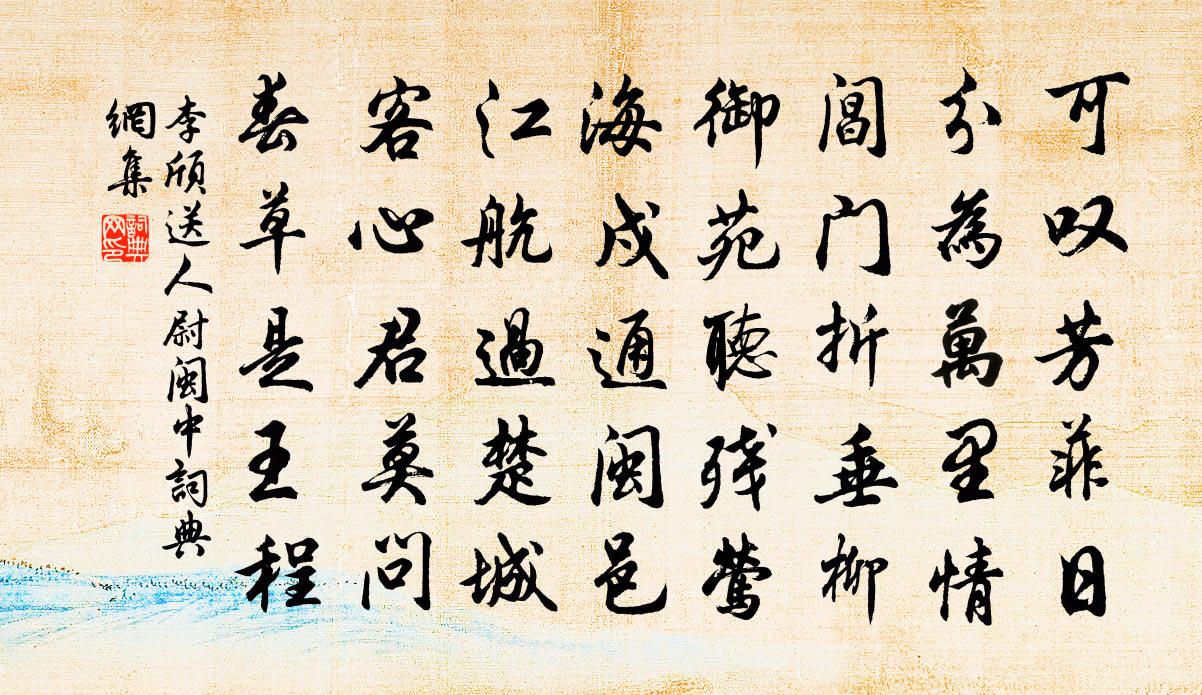 可叹芳菲日
分為萬里情
閶门折垂柳
御苑聽残鶯
海戍通闽邑
江航過楚城
客心君莫问
春草是王程
李颀送人尉闽中詞典
網集
詞典网印